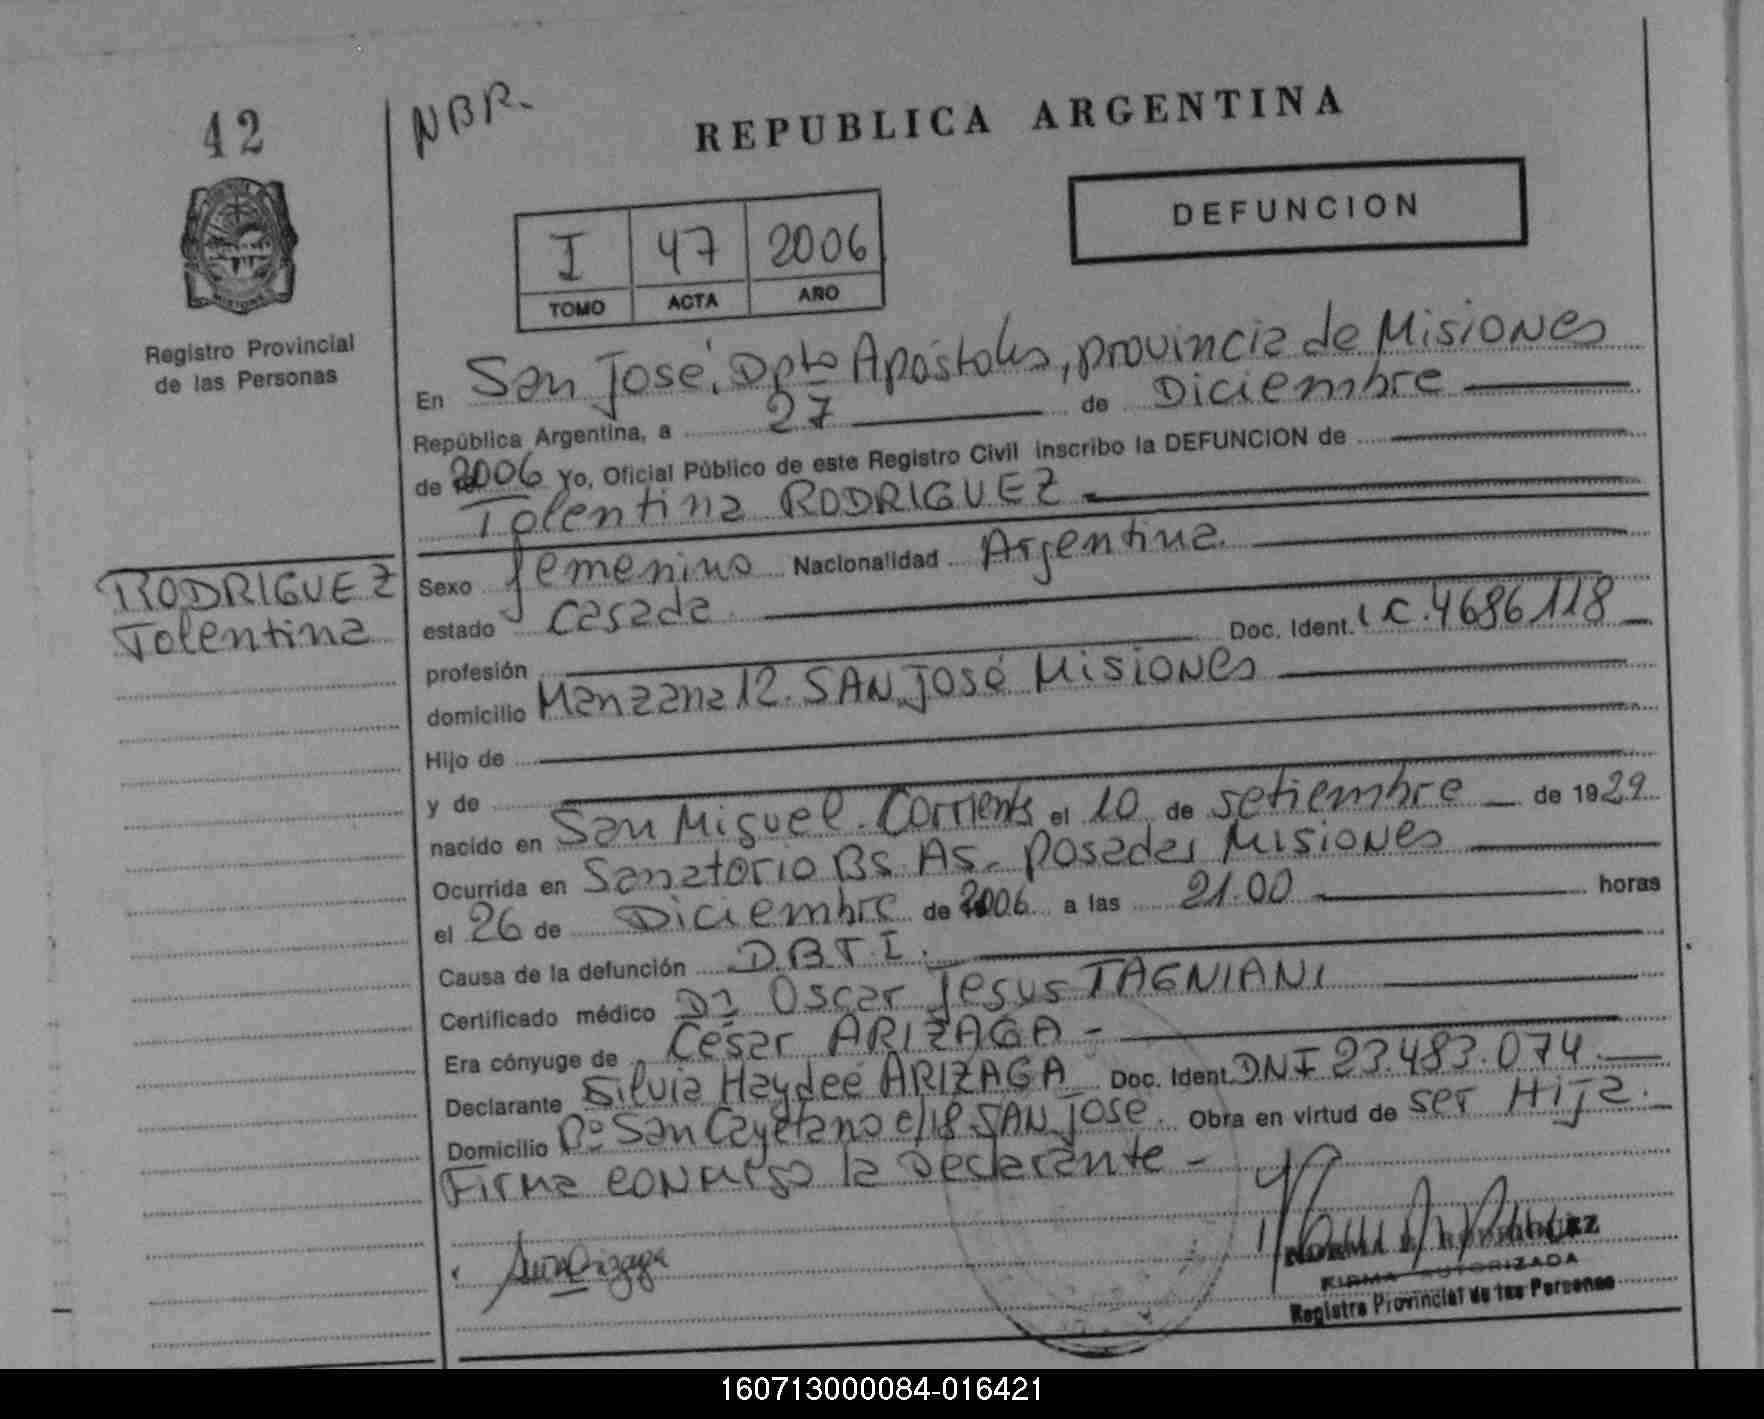 42
NBR.
REPUBLICA ARGENTINA
DEFUNCION
I 47 2006
TOMO ACTA AÑO
Registro Provincial
de las Personas
En San José, Dpto Apóstoles, provincia de Misiones
República Argentina, a 27 de Diciembre
de 2006 Yo, Oficial Público de este Registro Civil inscribo la DEFUNCION de
Tolentina RODRIGUEZ
RODRIGUEZ
Tolentina
Sexo femenino Nacionalidad Argentina.
estado casada
profesión Doc. Ident. LC. 4686118
domicilio Manzana 12. SAN José Misiones
Hijo de
y de
nacido en San Miguel. Corrientes el 10 de setiembre de 1929
Ocurrida en Sanatorio Bs. As. Posadas Misiones
el 26 de Diciembre de 2006 a las 21.00 horas
Causa de la defunción D.B.T.I.
Certificado médico Dr Oscar Jesus TAGNIANI
Era cónyuge de César ARIZAGA -
Declarante Silvia Haydeé ARIZAGA Doc. Ident. DNI 23.483.074
Domicilio Bº San Cayetano c/18 SAN José. Obra en virtud de ser Hija.
Firma conmigo la Declarante -
FIRMA AUTORIZADA
Registro Provincial de las Personas
160713000084-016421